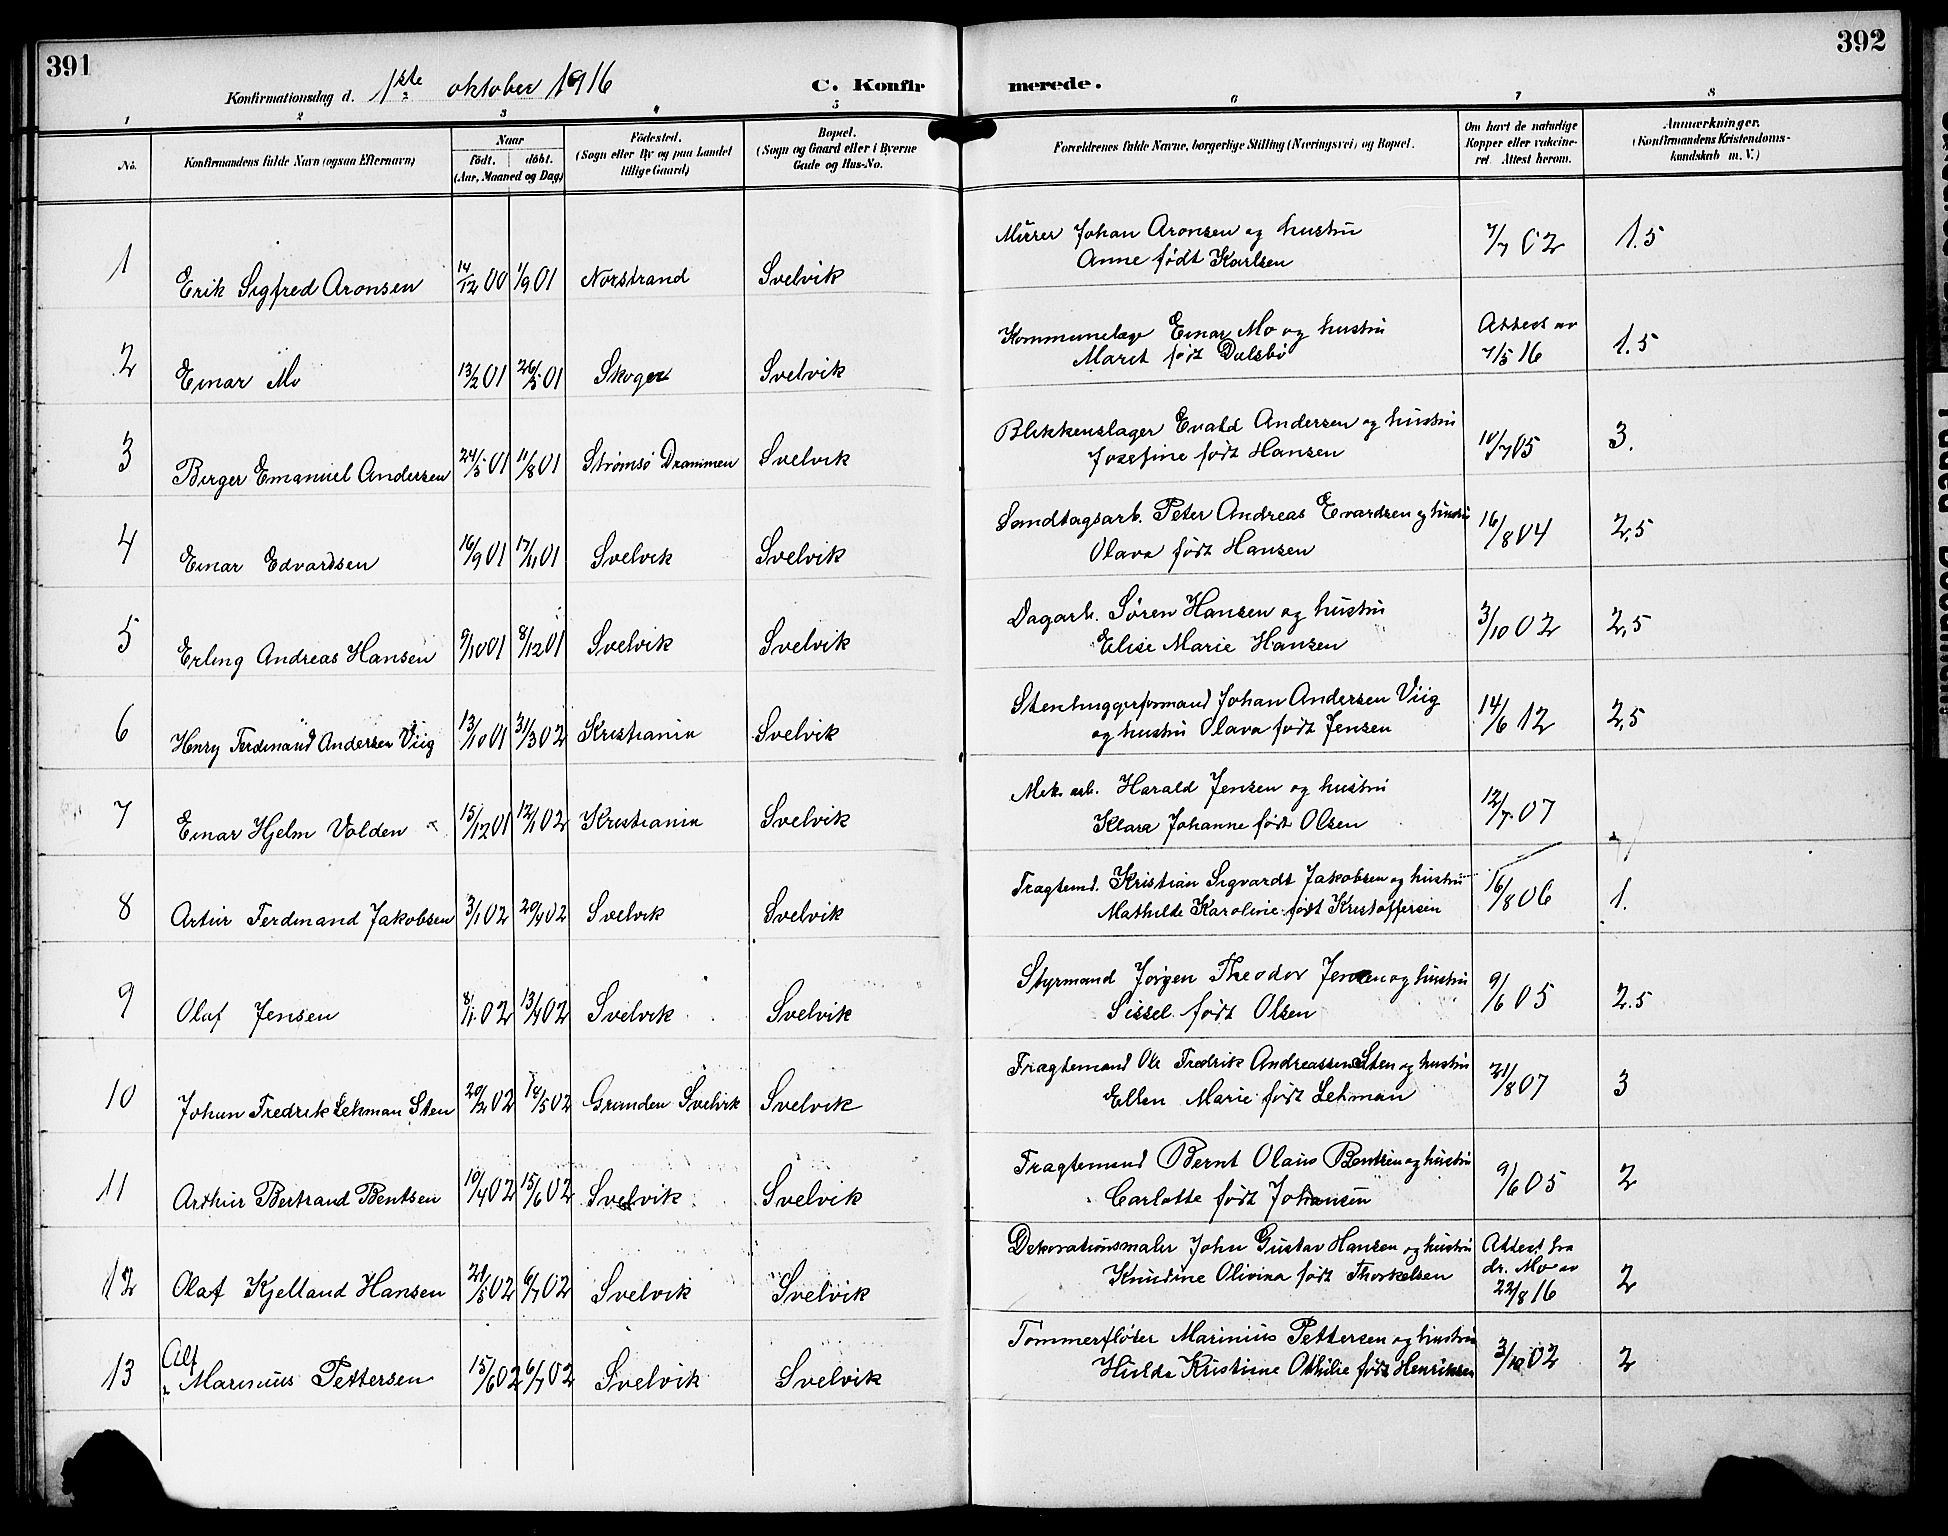 391
392
Konfirmationsdag d. 1ste oktober 1916
C. Konfir
merede.
1 2 3 4 5 6 7 8
No.
Konfirmandens fulde Navn (ogsaa Efternavn)
Naar
født. døbt.
(Aar, Maaned og Dag)
Fødested.
(Sogn eller By og paa Landet
tillige Gaard)
Bopæl.
(Sogn og Gaard eller i Byerne
Gade og Hus-No.
Forældrenes fulde Navne, borgerlige Stilling (Næringsvei) og Bopæl.
Om havt de naturlige
Kopper eller vakcine-
ret. Attest herom.
Anmærkninger.
(Konfirmandens Kristendoms-
kundskab m. V.)
Murer Johan Aronsen og hustru
1 Erik Sigfred Aronsen 14/12 00 1/9 01 Norstrand Svelvik Anne født Karlsen 7/7 02 1.5
Kommunelæge Einar Mo og hustru Attest av
2 Einar Mo 13/2 01 26/5 01 Skoger Svelvik Marit født Dalsbø 7/5 16 1.5
Blikkenslager Evald Andersen og hustru
3 Birger Emanuel Andersen 24/5 01 11/8 01 Strømsø Drammen Svelvik Josefine født Hansen 10/7 05 3.
Sandtagsarb. Peter Andreas Evardsen og hustru
4 Einar Edvardsen 16/9 01 17/11 01 Svelvik Svelvik Olava født Hansen 16/8 04 2,5
Dagarb. Søren Hansen og hustru
5 Erling Andreas Hansen 9/10 01 8/12 01 Svelvik Svelvik Elise Marie Hansen 3/10 02 2,5
Stenhuggerformand Johan Andersen Viig
6 Henry Ferdinand Andersen Viig 13/10 01 31/3 02 Kristiania Svelvik og hustru Olava født Jensen 14/6 12 2,5
Mek. arb. Harald Jensen og hustru
7 Einar Hjelm Volden 15/12 01 12/1 02 Kristiania Svelvik Klara Johanne født Olsen 12/7 07
Fragtemd. Kristian Sigvardt Jakobsen og hustru
8 Artur Ferdinand Jakobsen 3/1 02 20/4 02 Svelvik Svelvik Mathilde Karoline født Kristoffersen 16/8 06 1.
Styrmand Jørgen Theodor Jensen og hustru
9 Olaf Jensen 8/1 02 13/4 02 Svelvik Svelvik Sissel født Olsen 9/6 05 2.5
Fragtemand Ole Fredrik Andreassen Sten og hustru
10 Johan Fredrik Lehman Sten 20/2 02 18/5 02 Granden Svelvik Svelvik Ellen Marie født Lehman 21/8 07 3
Fragtemand Bernt Olaus Bentsen og hustru
11 Arthur Bertrand Bentsen 10/4 02 15/6 02 Svelvik Svelvik Carlotte født Johansen 9/6 05 2
Dekorationsmaler John Gustav Hansen og hustru Attest fra
dr. Mo av
12 Olaf Kjelland Hansen 21/5 02 6/7 02 Svelvik Svelvik Knudine Olivina født Thorkelsen 22/8 16 2
Tømmerfløter Marinius Pettersen og hustru
13 Alf Marinius Pettersen 15/6 02 6/7 02 Svelvik Svelvik Hulda Kristine Othilie født Henriksen 3/10 02 2